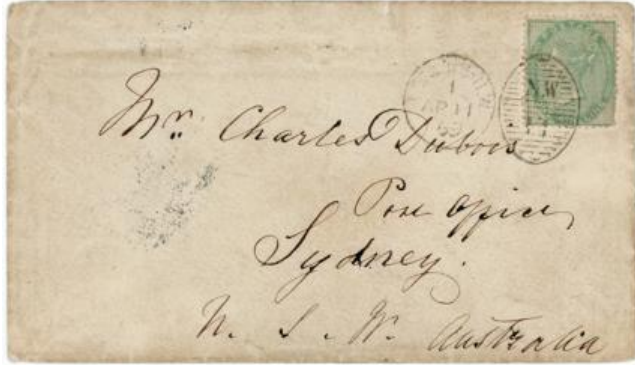 N.W
1
AP 11
Mr. Charles Dubois
Post Office
Sydney.
N. S. W. Australia